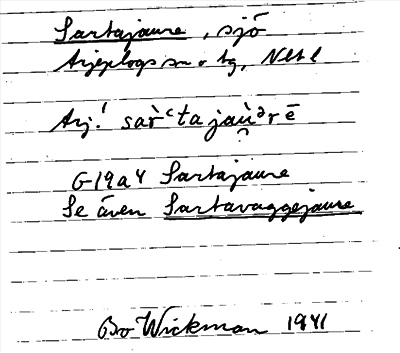 Sartajaure, sjö
Arjeplogs sn o tg, Nbt l
Arj! sar̀ᶜtajaùᵊrē
?
G19a4 Sartajaure
Se även Sartavaggejaure
Bo Wickman 1941